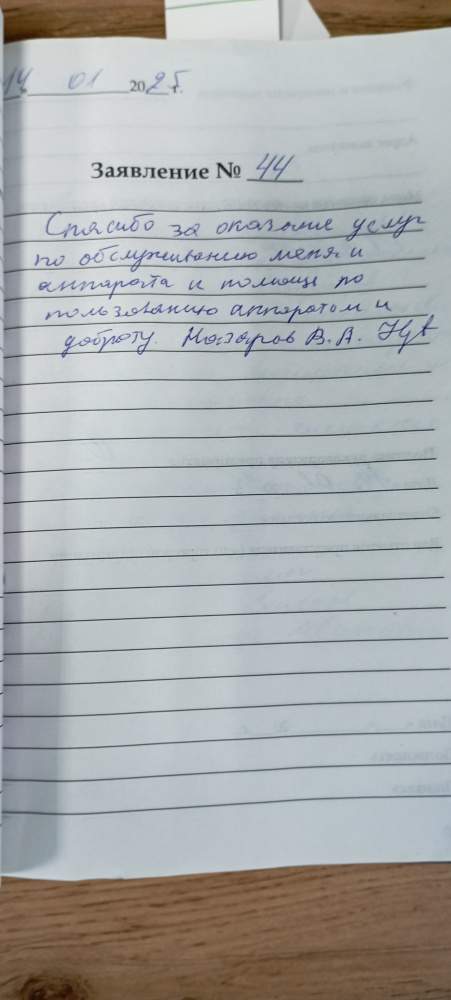 14 01 2025 г.
Заявление № 44
Спасибо за оказание услуг
по обслуживанию меня и
аппарата и помощи по
пользованию аппаратом и
доброту. Назаров В. А.